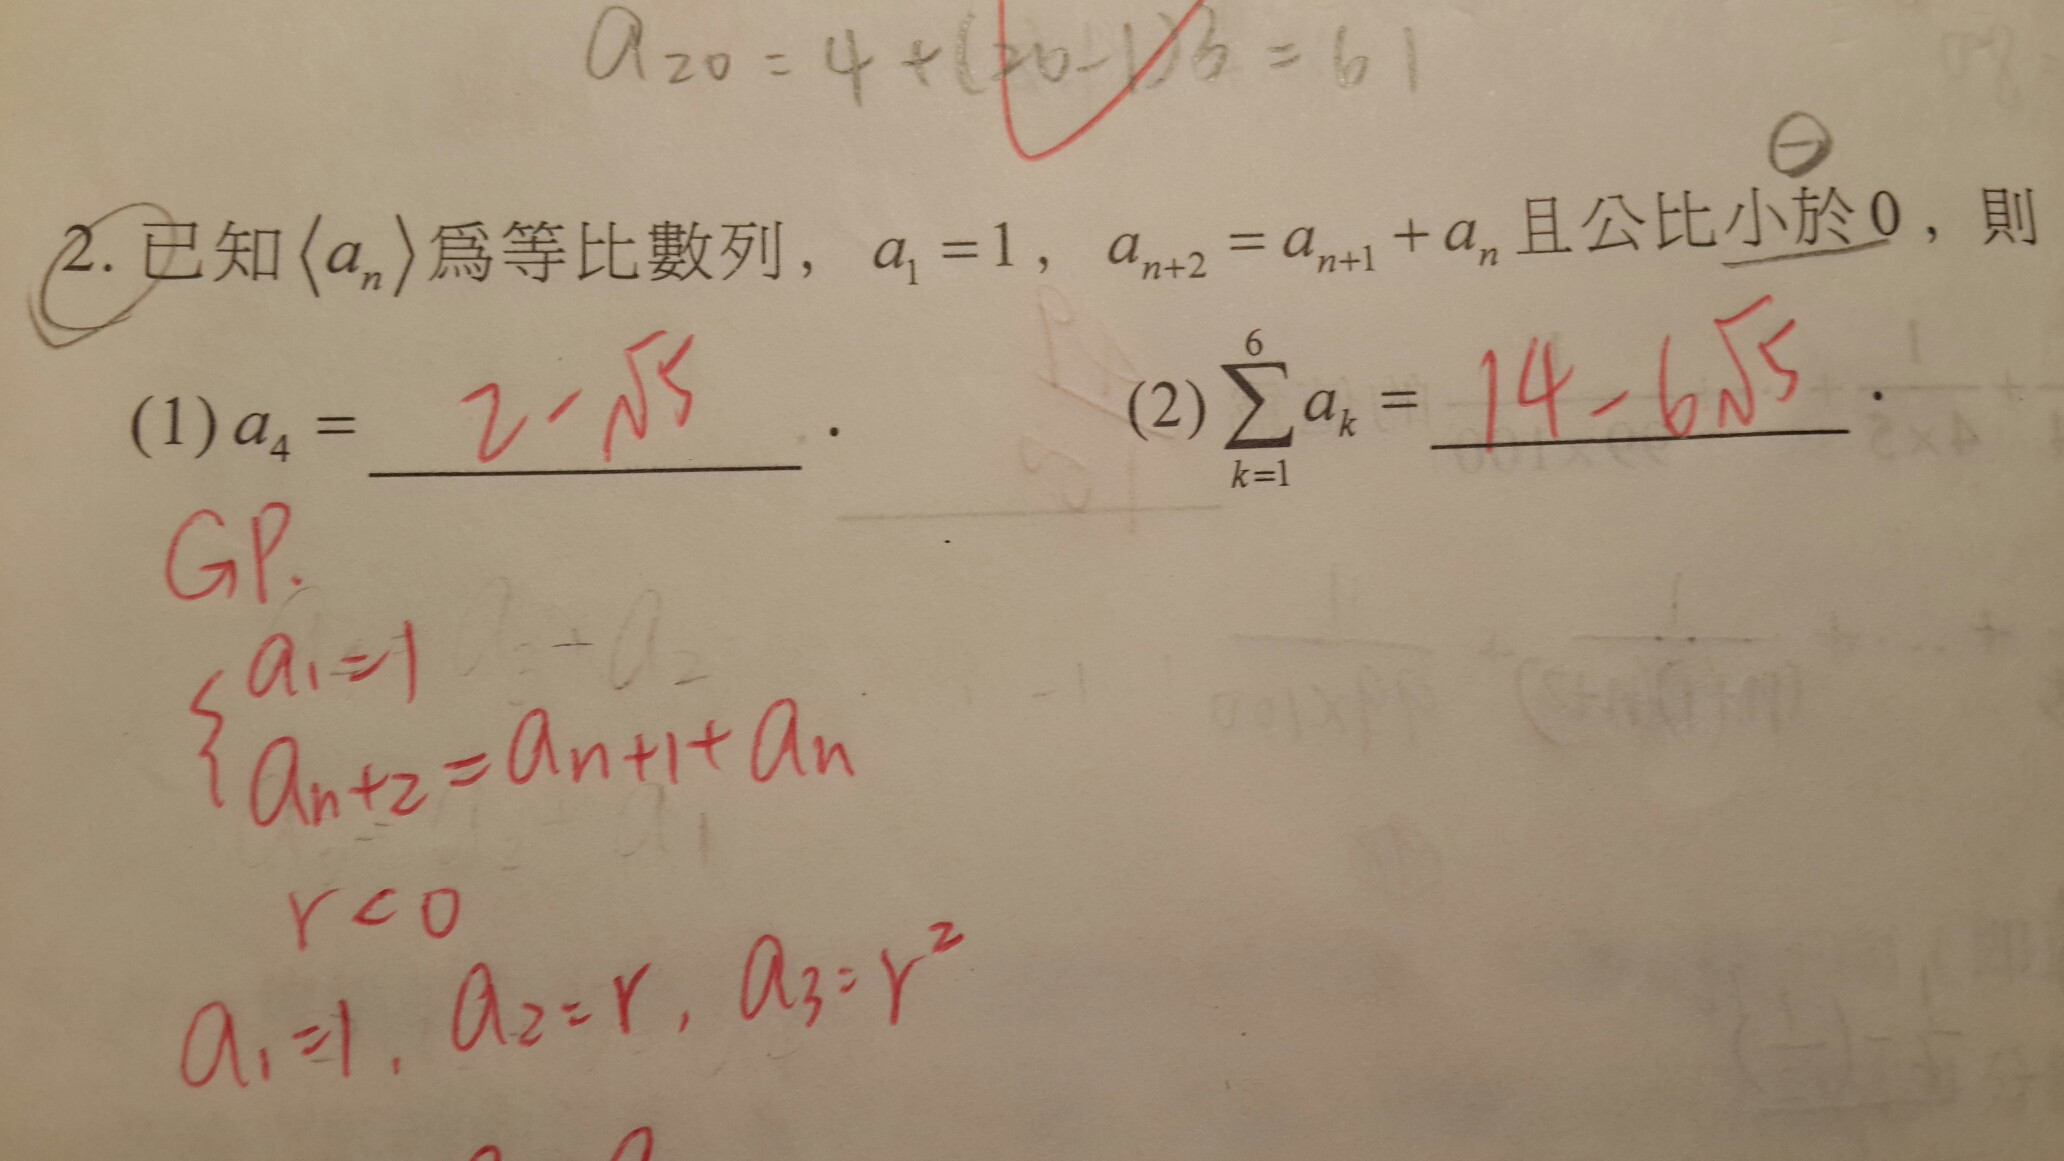 a₂₀ = 4 + (20-1)3 = 61
2. 已知⟨aₙ⟩爲等比數列，a₁ = 1，aₙ₊₂ = aₙ₊₁ + aₙ 且公比小於0，則
(1) a₄ = 2-√5 . (2) ∑_{k=1}^{6} aₖ = 14-6√5 .
GP.
a₁=1
aₙ₊₂=aₙ₊₁+aₙ
r<0
a₁=1, a₂=r, a₃=r²